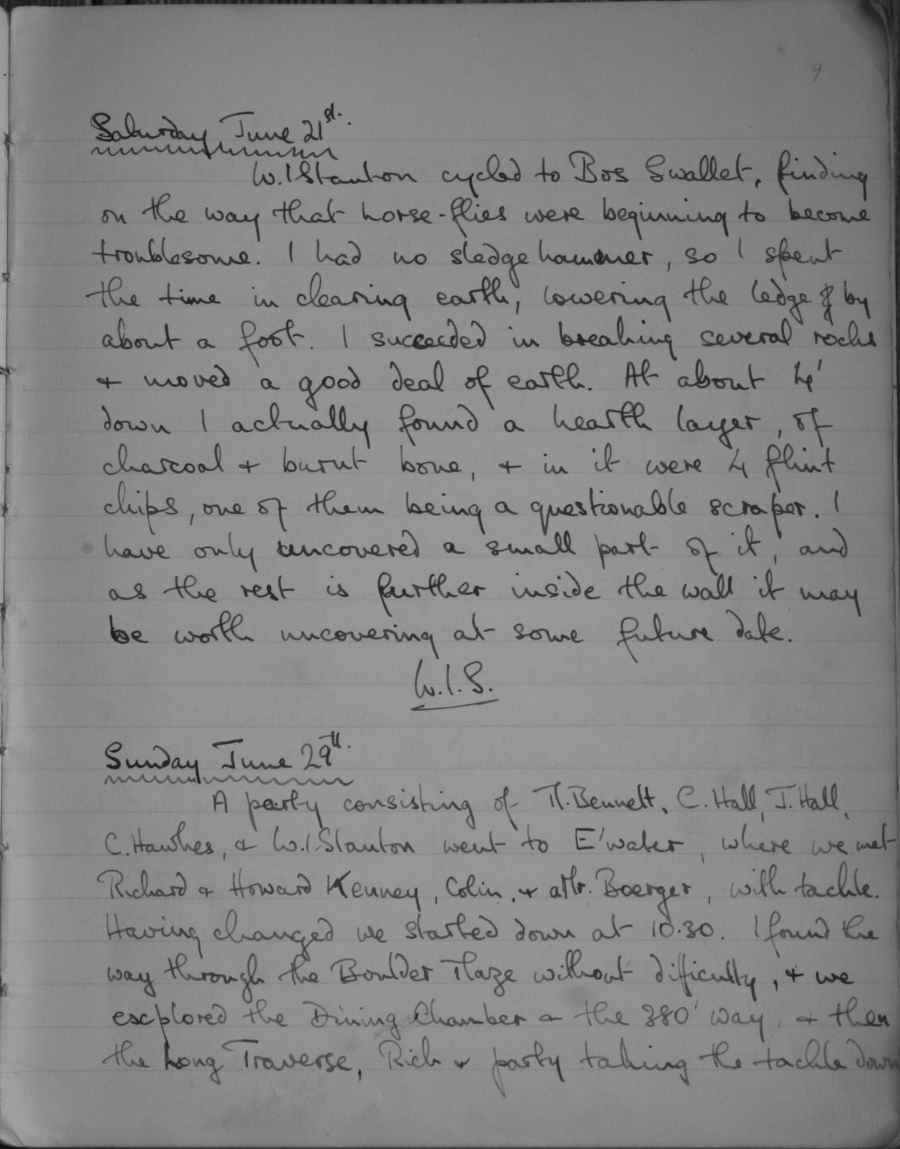 9
Saturday June 21st.
W.I Stanton cycled to Bos Swallet, finding
on the way that horse-flies were beginning to become
troublesome. I had no sledgehammer, so I spent
the time in clearing earth, lowering the ledge by
about a foot. I succeeded in breaking several rocks
+ moved a good deal of earth. At about 4'
down I actually found a hearth layer, of
charcoal + burnt bone, + in it were 4 flint
chips, one of them being a questionable scraper. I
have only uncovered a small part of it, and
as the rest is further inside the wall it may
be worth uncovering at some future date.
W.I.S.
Sunday June 29th.
A party consisting of M. Bennett, C. Hall, J. Hall,
C. Hawkes, & W.I. Stanton went to E'water, where we met
Richard + Howard Kenney, Colin, + Mr. Boerger, with tackle.
Having changed we started down at 10.30. I found the
way through the Boulder Maze without difficulty, + we
explored the Dining Chamber + the 380' way, + then
the Long Traverse, Rich + party taking the tackle down